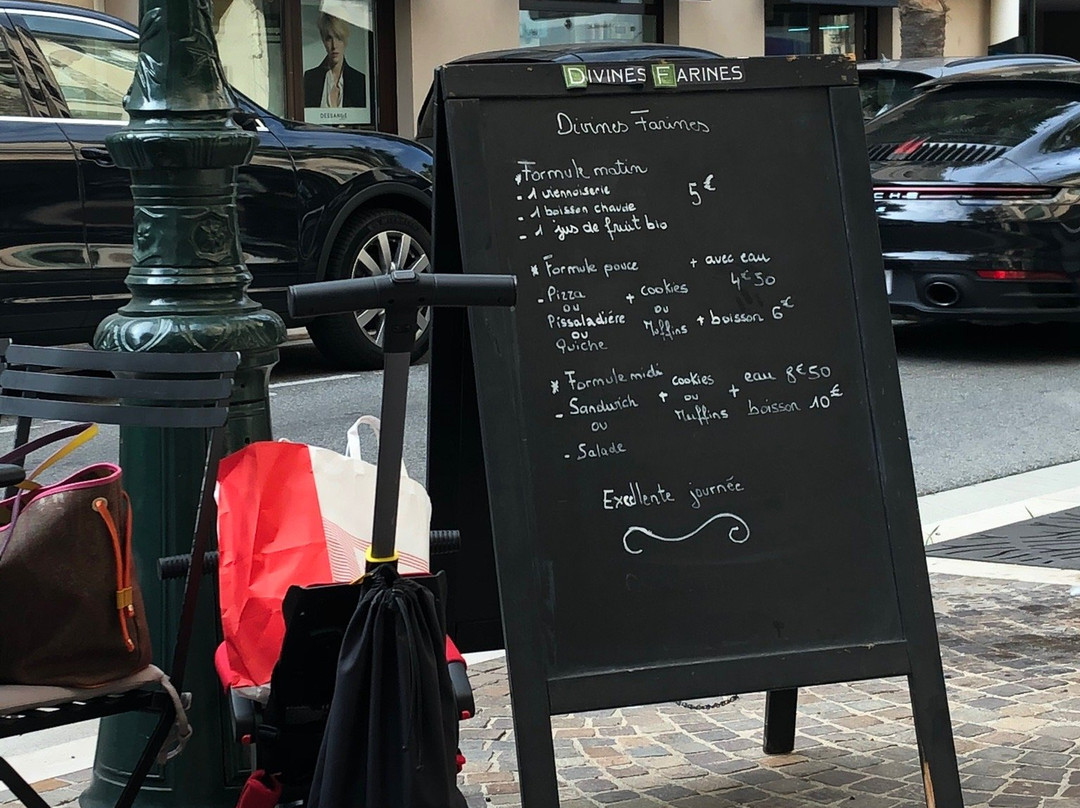 DESSANGE
DIVINES FARINES
Divines Farines
* Formule matin
- 1 viennoiserie
- 1 boisson chaude 5€
- 1 jus de fruit bio
* Formule pouce + avec eau
- Pizza + cookies 4€50
ou ou
Pissaladière Muffins + boisson 6€
ou
Quiche
* Formule midi cookies eau 8€50
- Sandwich + ou +
ou Muffins boisson 10€
- Salade
Excellente journée